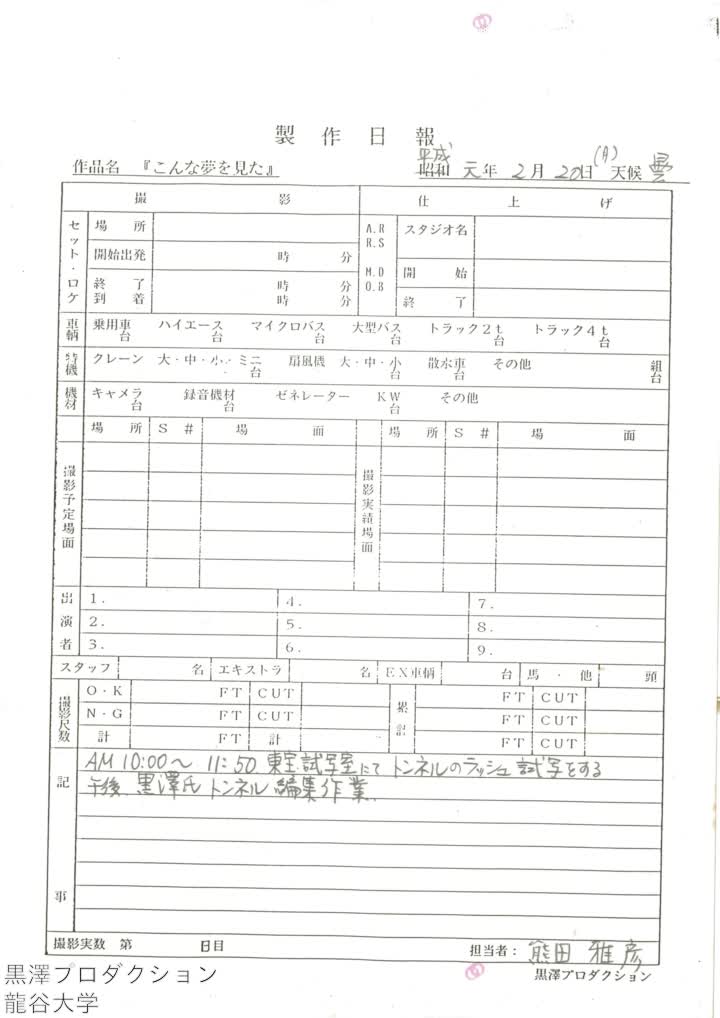 製作日報
作品名 『こんな夢を見た』 平成 昭和 元年 2月 20日 (月) 天候 曇
撮影 仕上げ
セット・ロケ 場所 A.R R.S スタジオ名
開始出発 時 分 M.D O.B 開始
終了 時 分
到着 時 分 終了
車輌 乗用車 台 ハイエース 台 マイクロバス 台 大型バス 台 トラック2t 台 トラック4t 台
特機 クレーン 大・中・小・ミニ 台 扇風機 大・中・小 台 散水車 台 その他 組 台
機材 キャメラ 台 録音機材 台 ゼネレーター KW 台 その他
撮影予定場面 場所 S# 場面 撮影実績場面 場所 S# 場面
出演者 1. 4. 7.
2. 5. 8.
3. 6. 9.
スタッフ 名 エキストラ 名 EX車輌 台 馬・他 頭
撮影尺数 O・K FT CUT 累計 FT CUT
N・G FT CUT FT CUT
計 FT 計 FT CUT
記事 AM 10:00〜11:50 東宝試写室にてトンネルのラッシュ試写をする
午後 黒澤氏 トンネル編集作業
撮影実数 第 日目 担当者: 熊田雅彦
黒澤プロダクション
黒澤プロダクション
龍谷大学